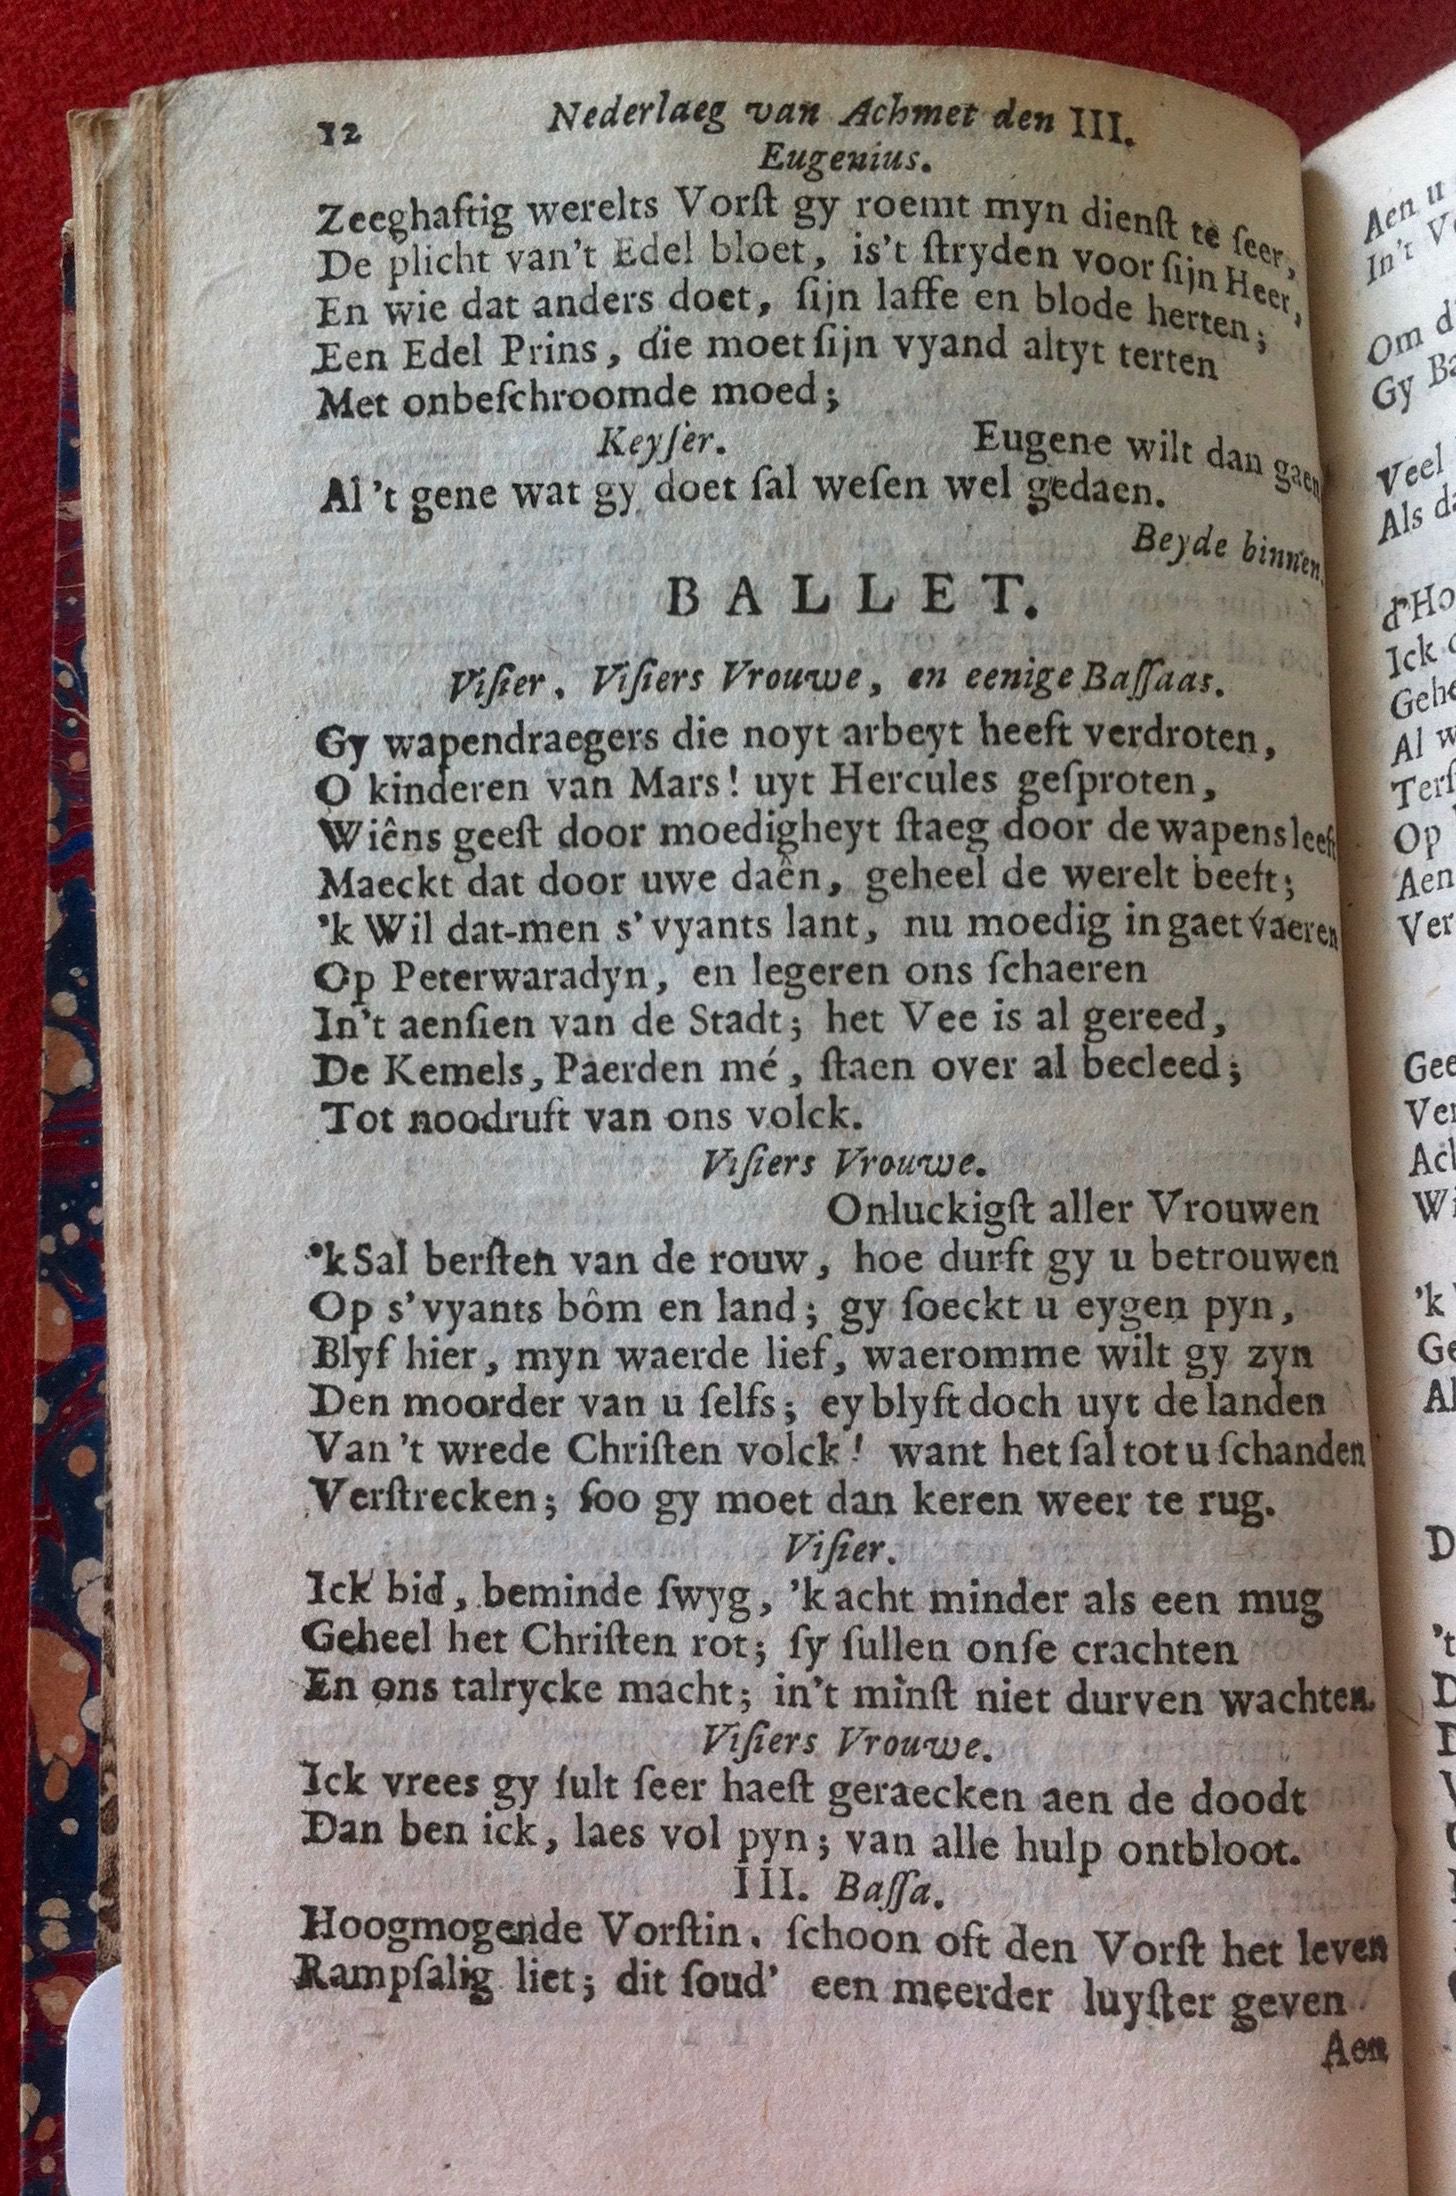 12 Nederlaeg van Achmet den III.
Eugenius.
Zeeghaftig werelts Vorſt gy roemt myn dienſt te ſeer,
De plicht van't Edel bloet, is't ſtryden voor ſijn Heer,
En wie dat anders doet, ſijn laffe en blode herten;
Een Edel Prins, die moet ſijn vyand altyt terten
Met onbeſchroomde moed;
Keyſer. Eugene wilt dan gaen
Al 't gene wat gy doet ſal weſen wel gedaen.
Beyde binnen.
BALLET.
Viſier, Viſiers Vrouwe, en eenige Baſſaas.
Gy wapendraegers die noyt arbeyt heeft verdroten,
O kinderen van Mars! uyt Hercules geſproten,
Wiêns geeſt door moedigheyt ſtaeg door de wapens leeft
Maeckt dat door uwe daên, geheel de werelt beeft;
'k Wil dat-men s'vyants lant, nu moedig in gaet vaeren
Op Peterwaradyn, en legeren ons ſchaeren
In't aenſien van de Stadt; het Vee is al gereed,
De Kemels, Paerden mé, ſtaen over al becleed;
Tot noodruft van ons volck.
Viſiers Vrouwe.
Onluckigſt aller Vrouwen
'k Sal berſten van de rouw, hoe durft gy u betrouwen
Op s'vyants bôm en land; gy ſoeckt u eygen pyn,
Blyf hier, myn waerde lief, waeromme wilt gy zyn
Den moorder van u ſelfs; ey blyft doch uyt de landen
Van 't wrede Chriſten volck! want het ſal tot u ſchanden
Verſtrecken; ſoo gy moet dan keren weer te rug.
Viſier.
Ick bid, beminde ſwyg, 'k acht minder als een mug
Geheel het Chriſten rot; ſy ſullen onſe crachten
En ons talrycke macht; in't minſt niet durven wachten.
Viſiers Vrouwe.
Ick vrees gy ſult ſeer haeſt geraecken aen de doodt
Dan ben ick, laes vol pyn; van alle hulp ontbloot.
III. Baſſa.
Hoogmogende Vorſtin, ſchoon oft den Vorſt het leven
Rampſalig liet; dit ſoud' een meerder luyſter geven
Aen